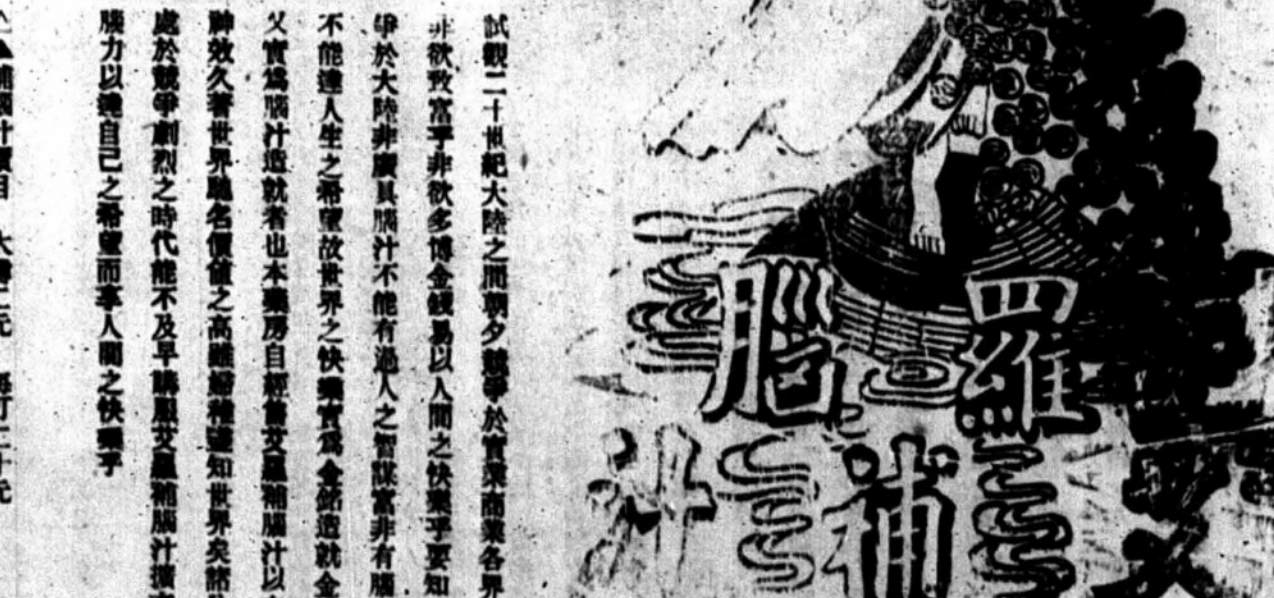 艾羅補腦汁
試觀二十世紀大陸之間朝夕競爭於實業商業各界
非欲致富乎非欲多博金錢易以人間之快樂乎要知
爭於大陸非廣具腦汁不能有過人之智謀富非有腦
不能達人生之希望故世界之快樂實為金銘造就金
又實為腦汁造就者也本藥房自經售艾羅補腦汁以
神效久著世界馳名價值之高雖婦稚盡知世界矣諸
處於競爭劇烈之時代能不及早購服艾羅補腦汁擴
腦力以達自己之希望而享人間之快樂乎
補腦汁價目 大 二元 每打二十元